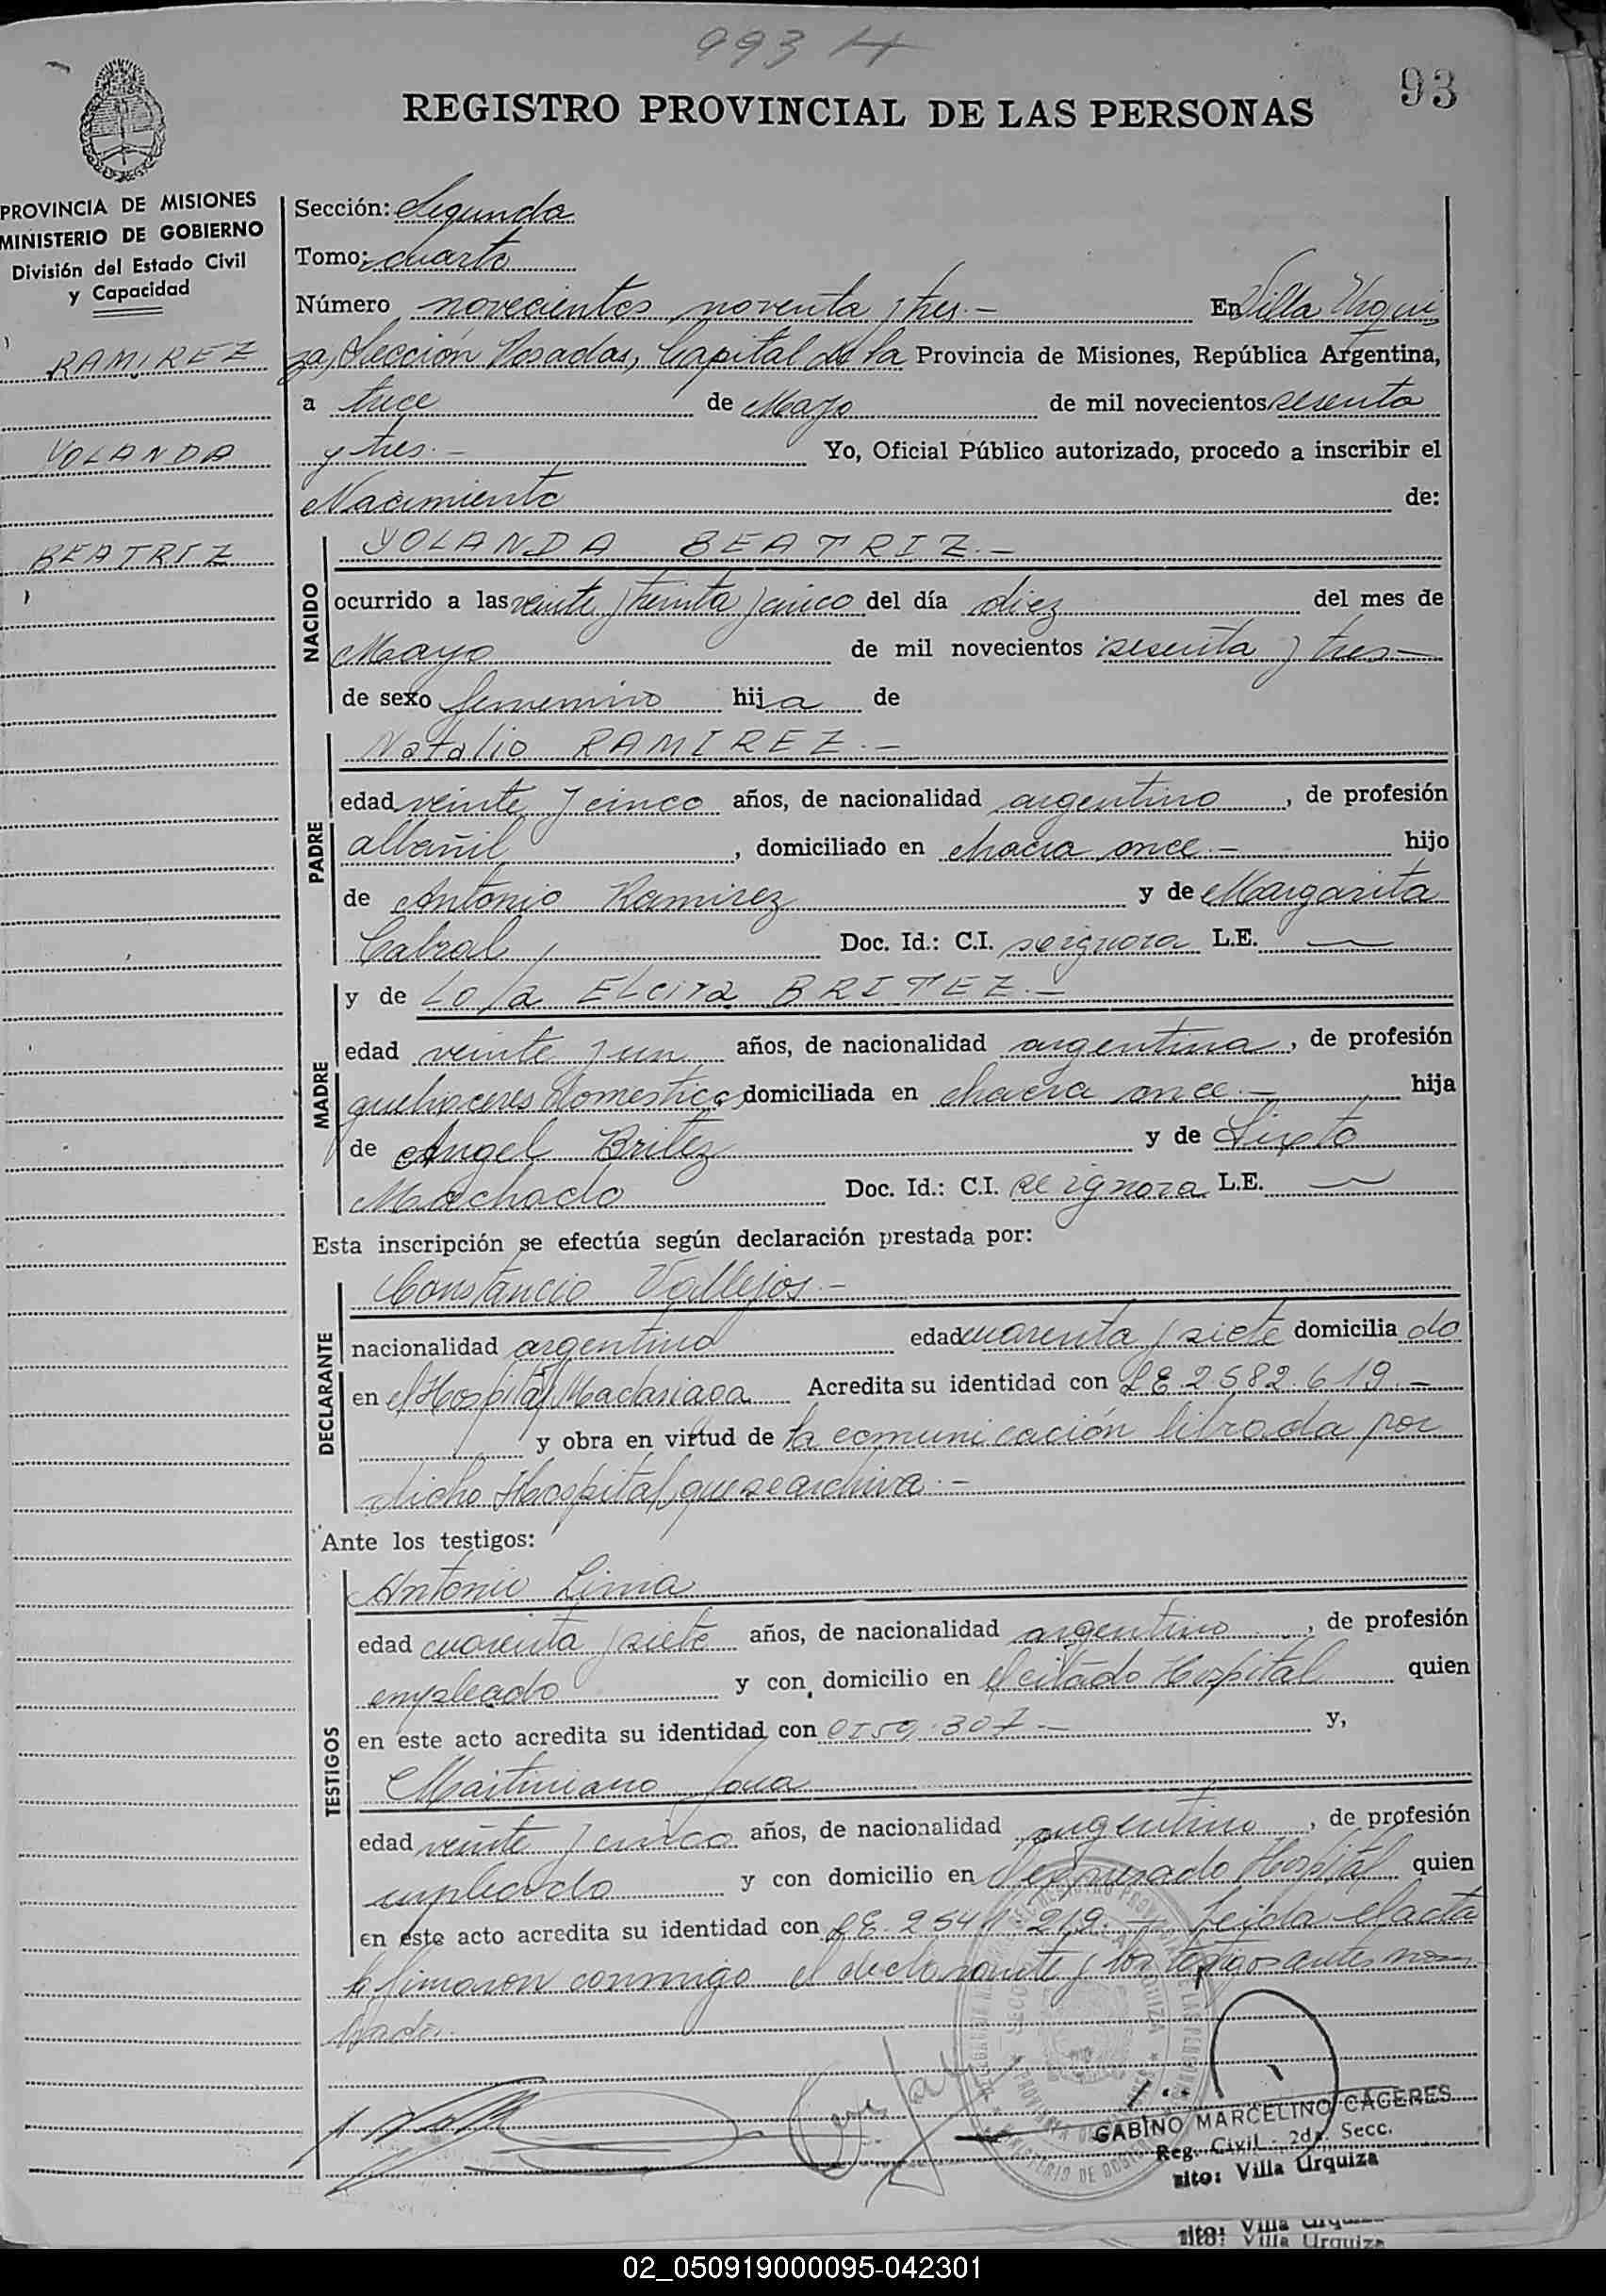 993 H
93
REGISTRO PROVINCIAL DE LAS PERSONAS
PROVINCIA DE MISIONES
MINISTERIO DE GOBIERNO
División del Estado Civil
y Capacidad
RAMIREZ
YOLANDA
BEATRIZ
Sección: Segunda
Tomo: cuarto
Número novecientos noventa y tres.- En Villa Urqui
za, Sección Posadas, Capital de la Provincia de Misiones, República Argentina,
a trece de Mayo de mil novecientos sesenta
y tres.- Yo, Oficial Público autorizado, procedo a inscribir el
Nacimiento de:
NACIDO
YOLANDA BEATRIZ.-
ocurrido a las veinte y treinta y cinco del día diez del mes de
Mayo de mil novecientos sesenta y tres-
de sexo femenino hija de
PADRE
Natalio RAMIREZ.-
edad veinte y cinco años, de nacionalidad argentino, de profesión
albañil, domiciliado en chacra once.- hijo
de Antonio Ramirez y de Margarita
Cabral Doc. Id.: C.I. se ignora L.E.
MADRE
y de Lola ELcira BRITEZ.-
edad veinte y un años, de nacionalidad argentina, de profesión
quehaceres domesticos domiciliada en chacra once.- hija
de Angel Britez y de Sixta
Machado Doc. Id.: C.I. se ignora L.E.
Esta inscripción se efectúa según declaración prestada por:
DECLARANTE
Constancio Vallejos.-
nacionalidad argentino edad cuarenta y siete domiciliado
en el Hospital Madariaga Acredita su identidad con LE 2582.619.-
y obra en virtud de la comunicación librada por
dicho Hospital, que se archiva.-
Ante los testigos:
TESTIGOS
Antonio Lima
edad cuarenta y siete años, de nacionalidad argentino, de profesión
empleado y con domicilio en el citado Hospital quien
en este acto acredita su identidad con 307.- y,
Martiniano
edad veinte y cinco años, de nacionalidad argentino, de profesión
empleado y con domicilio en el expresado Hospital quien
en este acto acredita su identidad con LE. 219.- Leida el acta
la firmaron conmigo el declarante y los testigos antes nom
brados.
GABINO MARCELINO CACERES
Reg. Civil - 2da. Secc.
sito: Villa Urquiza
sito: Villa Urquiza
02_050919000095-042301